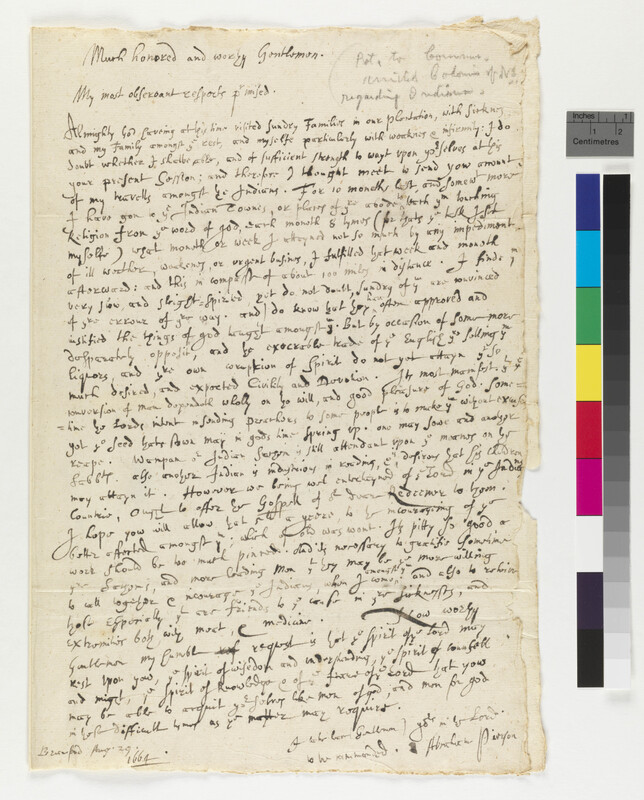 Much honored and worthy Gentlemen.
Pet. to Commrs.
united Colonies of N E
regarding Indians.
My most observant respects p^rmised.
Almighty God haveing at this time visited sundry Families in our plantation, with sicknes,
and my Family amongst y^e rest, and myselfe particularly with weaknes & infirmity: I do
doubt whether I shalbe able, and of sufficient strength to wayt upon yo^rselves at this
your present Session; and therefore I thought meet to send you amount
of my travells amongst the Indians. For 10 months last and somew^t more
I have gon to y^e Indian Townes, or places of y^re aboade teach ym touching
Religion from y^e word of god, each moneth 8 times (for thats y^e taske I set
myselfe) what moneth or week I attayned not so much by any impediment
of ill weather, weakenes, or urgent busines, I fulfilled that week and moneth
afterward: and this in compasse of about 100 miles in distance. I finde y^m
very slow and sleight-spirited yet do not doubt, sundry of y^m are convinced
of y^re errour of y^re way. and do know that they have often approved and
iustified the things of god taught amongst y^m. But by occasion of some more
desparately opposit, and the execrable trade of y^e English y^re selling y^m
liquors, and y^re own corruption of spirit do not yet attayn y^e so
much desired, and expected Civility and Devotion. Its most manifest y^t y^e
conversion of men dependeth wholly on the will, and good pleasure of God. Some-
time the Lords intent in sending preachers to some people is to make y^m without excuse
yet y^e seed thats sown may in gods time spring up. one may sowe and another
reape. y^e Indian is still attendant upon y^e meanes on the
sabbth. also another Indian is industrious in reading, & desirous that his children
may attayn it. However we being well enterteyned of y^e Lord in y^e Indian
Countrie, Ought to offer the Gospell of o^r deare Redeemer to them.
I hope you will allow a yeere to the incouraging of y^e
better affected amongst y^m; which was wont. Its pitty so good a
work should be too much pinned. and its necessary to gratifie sometime
y^e Sagems, and more leading men y^t they may be y^e more willing
to call together & incourage y^e Indians, when I come amongst y^m and also to releive
those especially, y^t are friends to y^e cause in y^re sicknesses, and
extremities both with meat, & medicine. Now worthy
Gentlemen my humble request is that y^e spirit of y^e Lord may
rest upon you, y^e spirit of wisdom and understanding, y^e spirit of counsell
and might, y^e spirit of knowledge & of y^e feare of y^e Lord that you
may be able to acquit yo^rselves like men of god, and men for god
in lost difficult times as y^e matter may require.
yo^rs in y^e Lord
to be commanded. Abraham Pierson
Branford Aug. 29.
1664
Inches 1 2
Centimetres